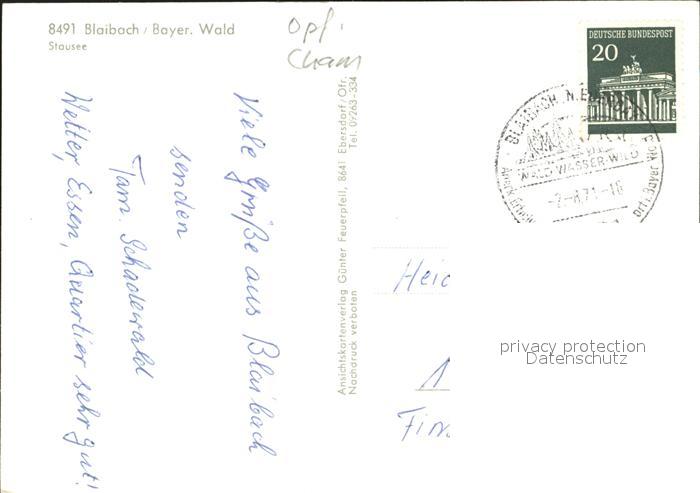 8491 Blaibach / Bayer. Wald
Stausee
Opf.
Cham
Viele Grüße aus Blaibach
senden
Fam. Schadewald
Wetter, Essen, Quartier sehr gut!
Ansichtskartenverlag Günter Feuerpfeil, 8641 Ebersdorf/Ofr.
Nachdruck verboten
Tel. 09263-334
DEUTSCHE BUNDESPOST
20
BLAIBACH
WALD-WASSER-WILD
Heid
1
Fin
privacy protection
Datenschutz